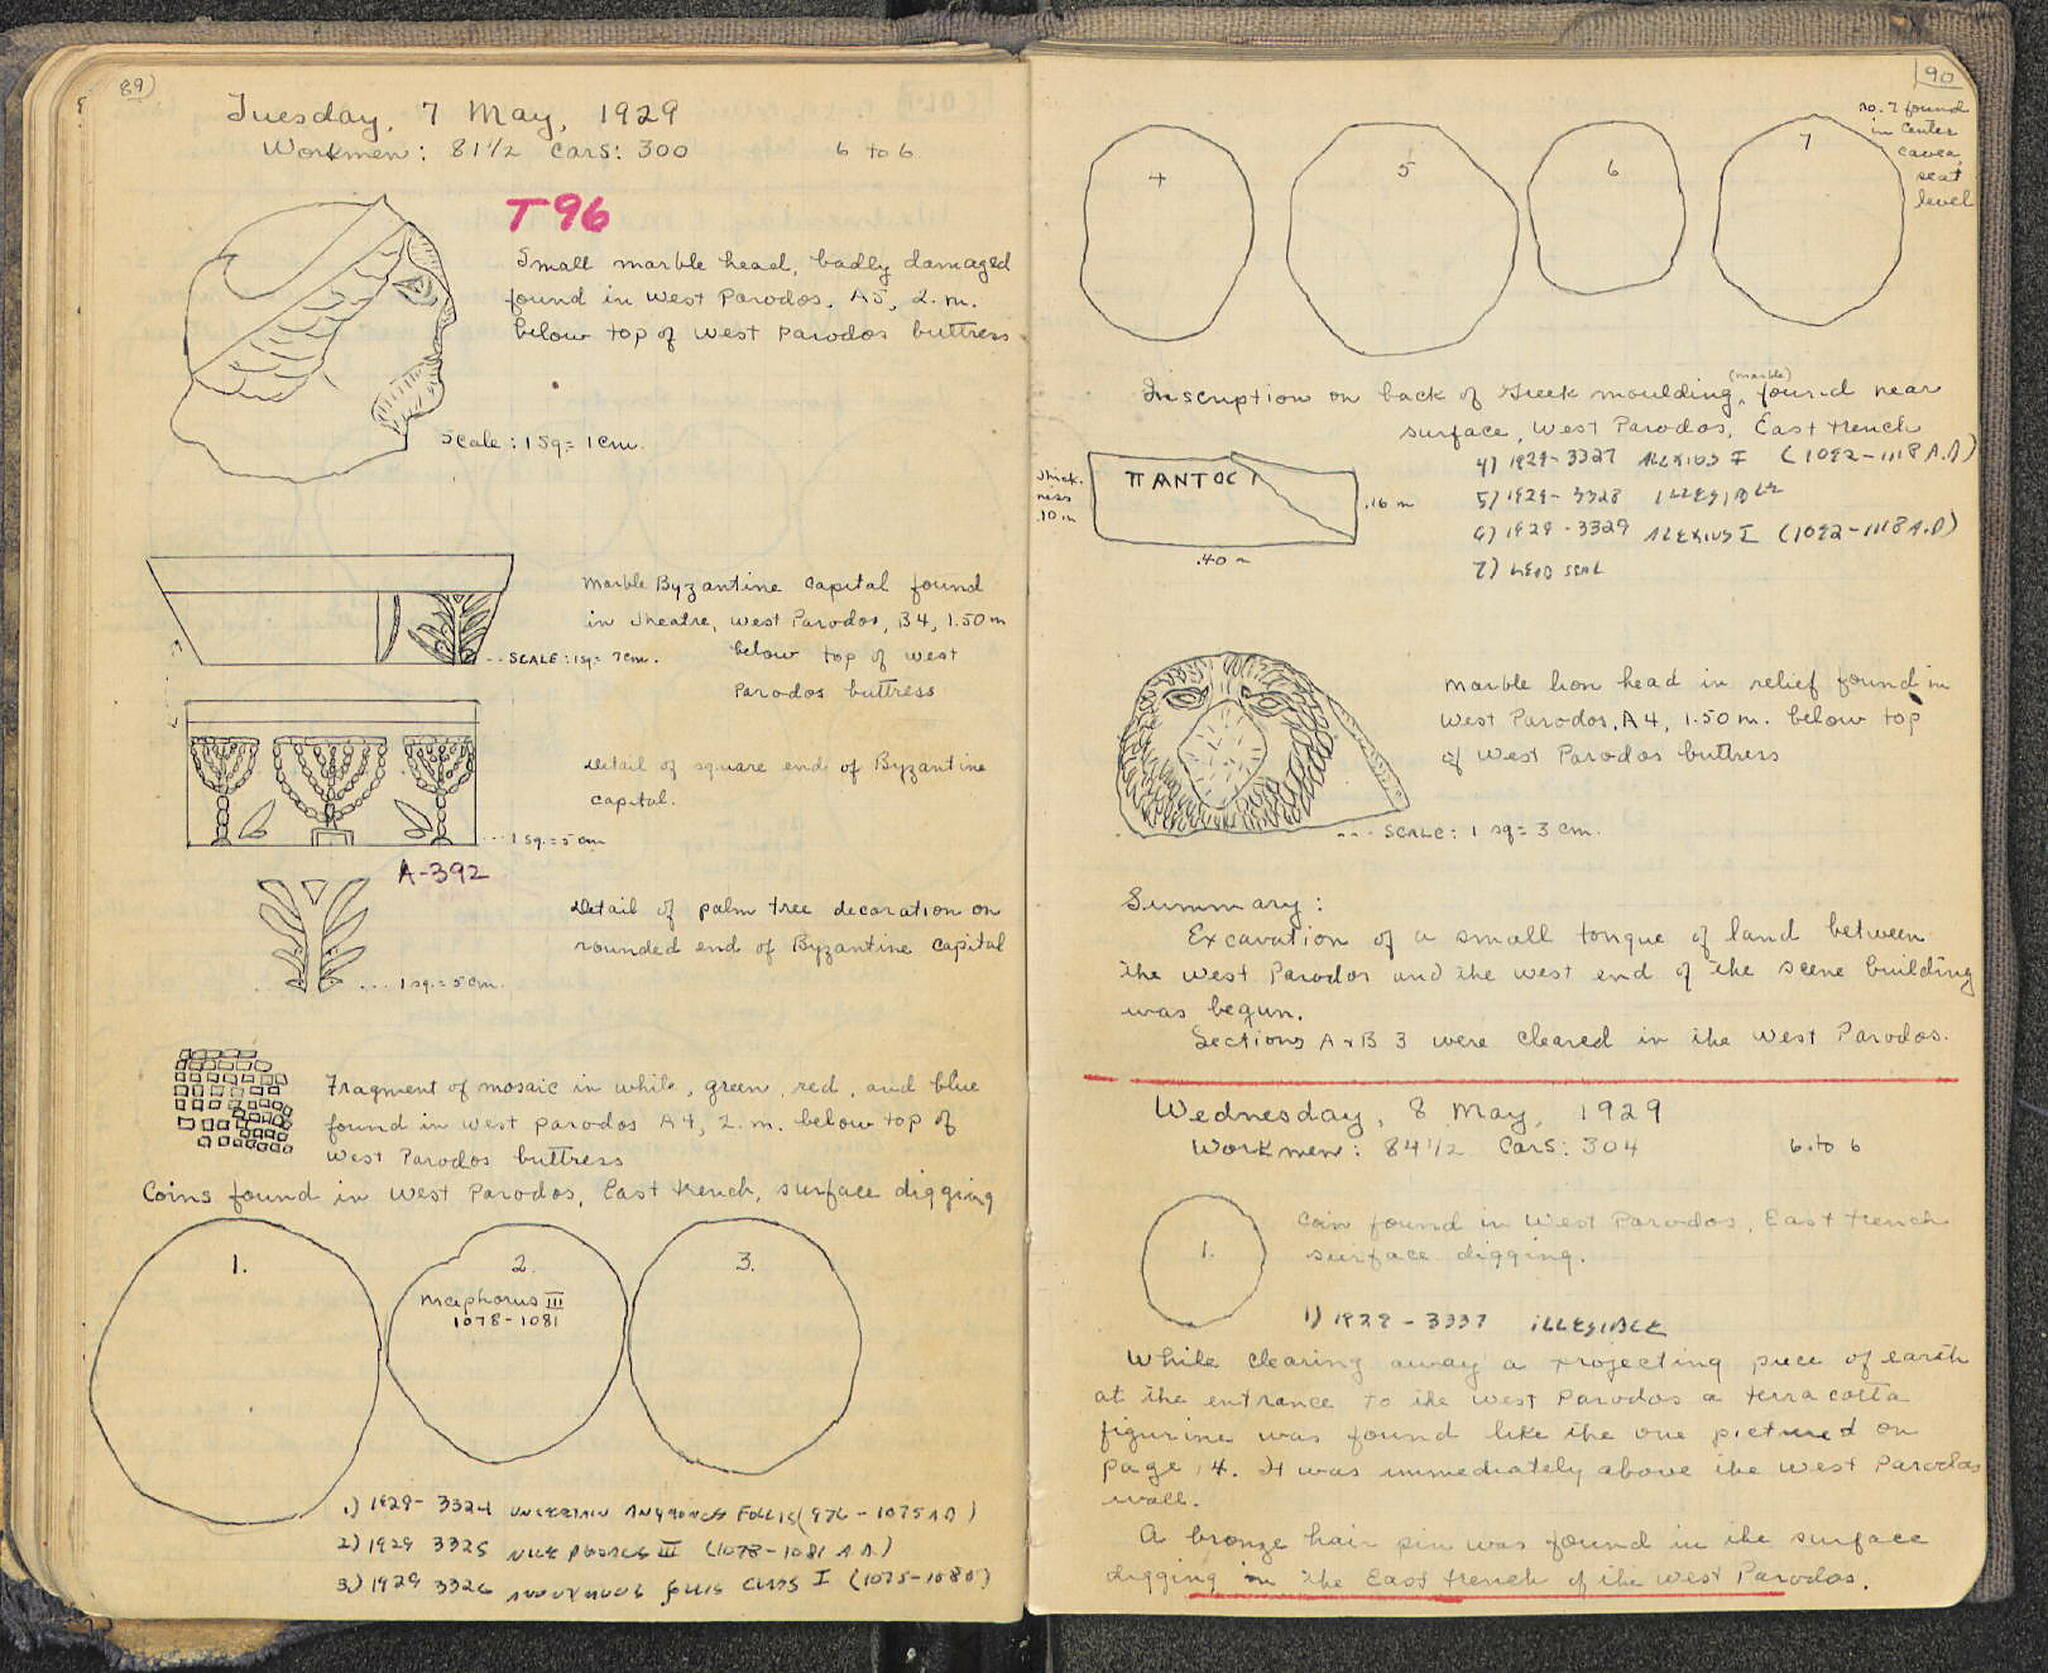 89)
Tuesday, 7 May, 1929
Workmen: 81 1/2 Cars: 300 6 to 6
T 96
Small marble head, badly damaged
found in West Parodos, A5, 2. m.
below top of West Parodos buttress
Scale: 1 Sq = 1 cm.
Marble Byzantine Capital found
in Theatre, West Parodos, B4, 1.50 m
below top of West
Parodos buttress
SCALE: 1 sq = 7 cm.
Detail of square end of Byzantine
capital.
1 sq. = 5 cm
A-392
Detail of palm tree decoration on
rounded end of Byzantine Capital
1 sq. = 5 cm.
Fragment of mosaic in white, green, red, and blue
found in West Parodos A4, 2. m. below top of
West Parodos buttress
Coins found in West Parodos, East trench, surface digging
1.
2.
Nicephorus III
1078-1081
3.
1.) 1929-3324 UNCERTAIN ANONYMOUS FOLLIS (976-1075 A D)
2) 1929 3325 NICEPHORUS III (1078-1081 A.D.)
3.) 1929 3326 ANONYMOUS FOLLIS CLASS I (1075-1080)
90
no. 7 found
in center
cavea,
seat
level
4
5
6
7
Inscription on back of Greek moulding, (marble) found near
surface, West Parodos, East trench
Thick-
ness
.10 m
ΠΑΝΤΟC
.16 m
.40 m
4) 1929-3327 ALEXIUS I (1092-1118 A.D)
5) 1929-3328 ILLEGIBLE
6) 1929-3329 ALEXIUS I (1092-1118 A.D)
7) LEAD SEAL
Marble lion head in relief found in
West Parodos, A4, 1.50 m. below top
of West Parodos buttress
SCALE: 1 sq = 3 cm.
Summary:
Excavation of a small tongue of land between
the West Parodos and the west end of the scene building
was begun.
Sections A & B 3 were cleared in the West Parodos.
Wednesday, 8 May, 1929
Workmen: 84 1/2 Cars: 304 6 to 6
1.
Coin found in West Parodos, East trench
surface digging.
1) 1929-3337 ILLEGIBLE
While clearing away a projecting piece of earth
at the entrance to the West Parodos a terra cotta
figurine was found like the one pictured on
page 4. It was immediately above the West Parodos
wall.
A bronze hair pin was found in the surface
digging in the East trench of the West Parodos.